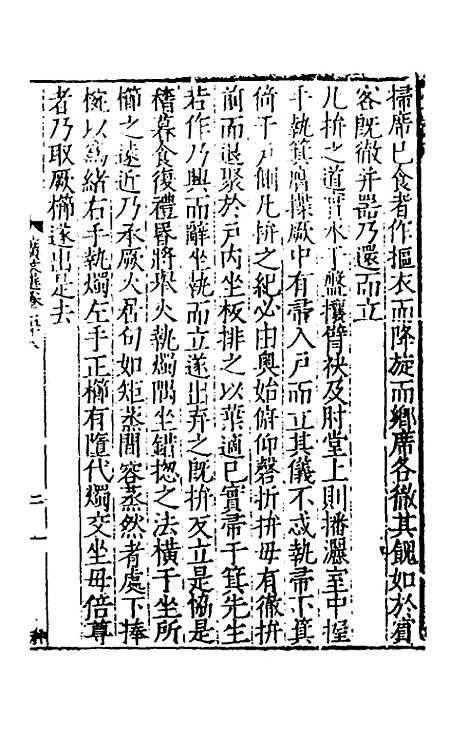 掃席已食者作摳衣而降旋而鄉席各徹其餽如於賓
客既徹并器乃還而立
凡拚之道實水于盤攘臂袂及肘堂上則播灑室中握
手執箕膺揲厥中有帚入戶而立其儀不忒執帚下箕
倚于戶側凡拚之紀必由奧始俯仰磬折拚毋有徹拚
前而退聚於戶内坐板排之以葉適己實帚于箕先生
若作乃興而辭坐執而立遂出弃之既拚反立是協是
稽暮食復禮昬將舉火執燭隅坐錯揔之法横于坐所
櫛之遠近乃承厥火居句如矩蒸間容蒸然者處下捧
椀以爲緒右手執燭左手正櫛有墮代燭交坐毋倍尊
者乃取厥櫛遂出是去
廣文選卷
二